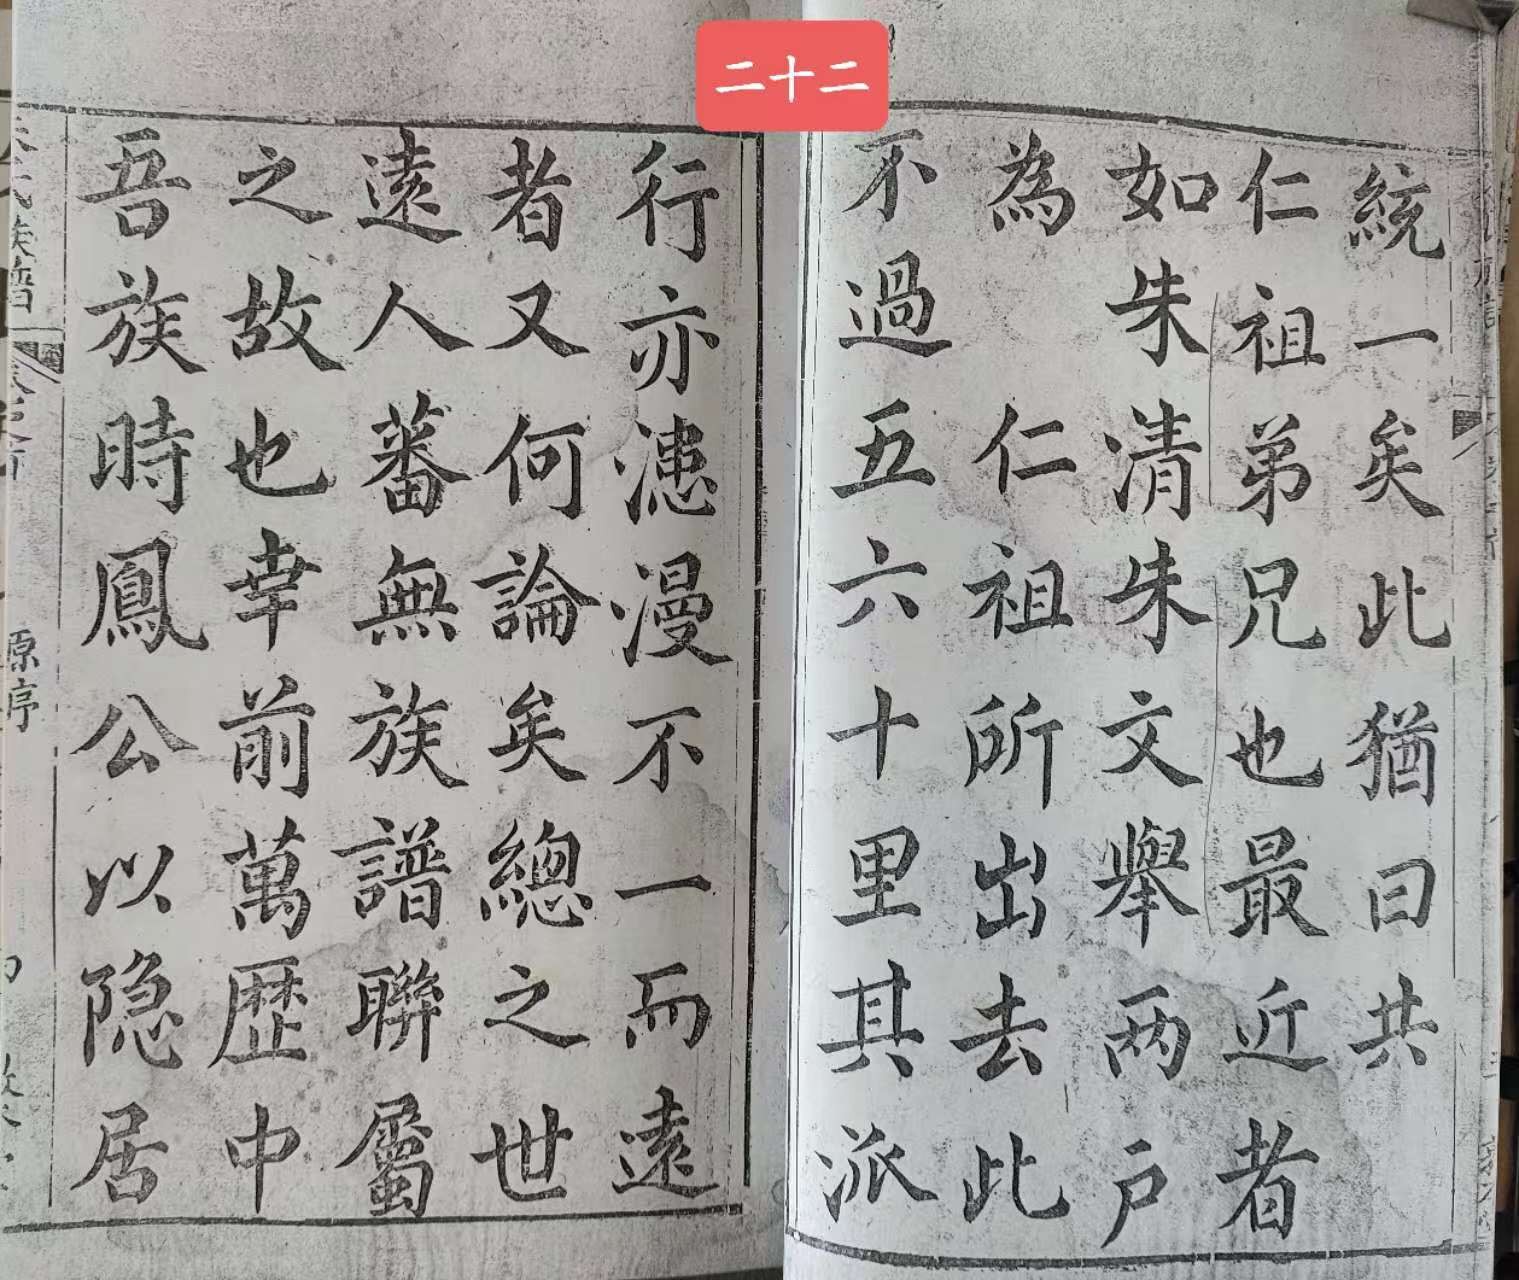 二十二
統一矣此猶曰共
仁祖弟兄也最近者
如朱清朱文舉两戶
為仁祖所出去此
不過五六十里其派
行亦漶漫不一而遠
者又何論矣總之世
遠人蕃無族譜聯屬
之故也幸前萬歷中
吾族時鳳公以隐居
族譜
原序